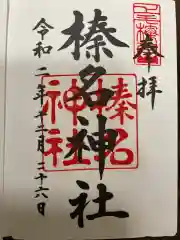 奉拝
榛名神社
榛名
神社
令和二年十二月二十六日